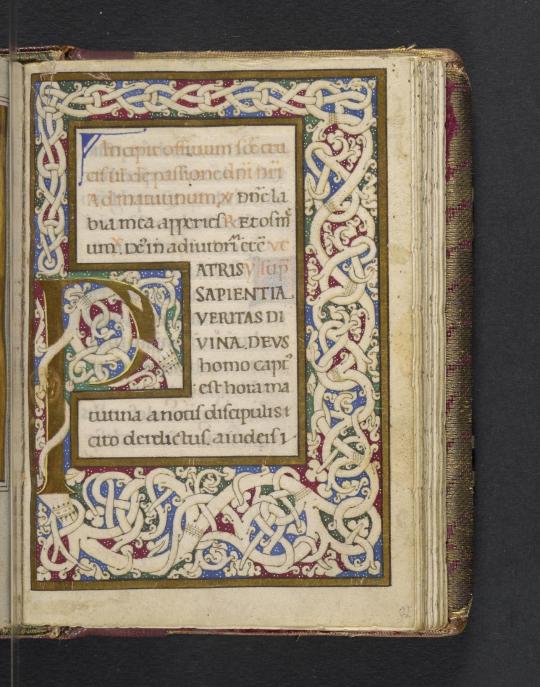 Incipit offitium sc̄e cru
cis sīl de passione dn̄i nr̄i
Ad matutinum, ℣ Dn̄e la
bia mea apperies ℟ Et os mˀ
um. ℣. Dˢ in adiutorˀ etc̄
PATRIS
SAPIENTIA
VERITAS DI
VINA, DEVS
homo captˀ
est hora ma
tutina a notis discipulis ⁊
cito derelictus, a iudeis ⁊